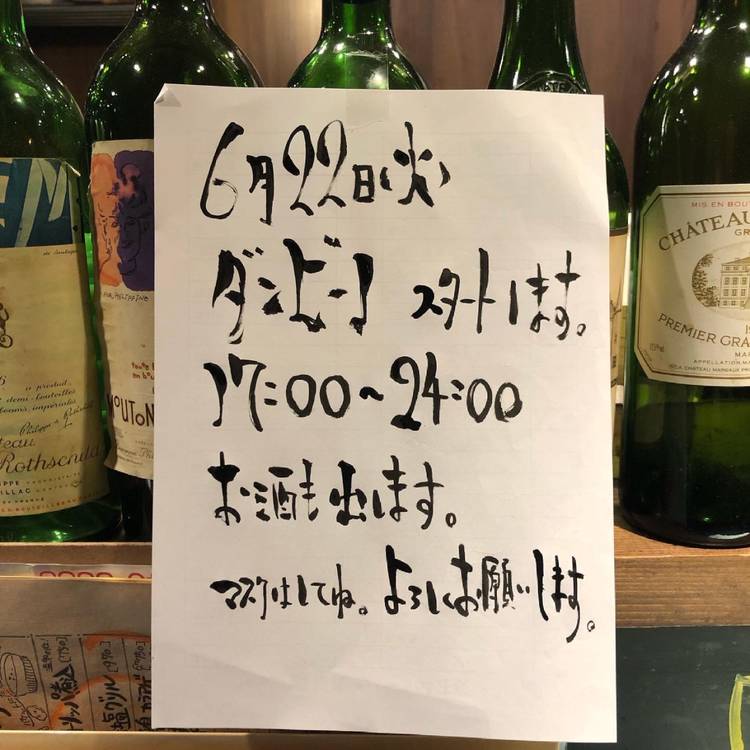 6月22日(火)
ダンビーノ スタートします。
17:00~24:00
お酒も出します。
マスクはしてね。よろしくお願いします。
Rothschild
MOUTON
MIS EN BOU
CHÂTEAU
PREMIER GRA
塩グリル